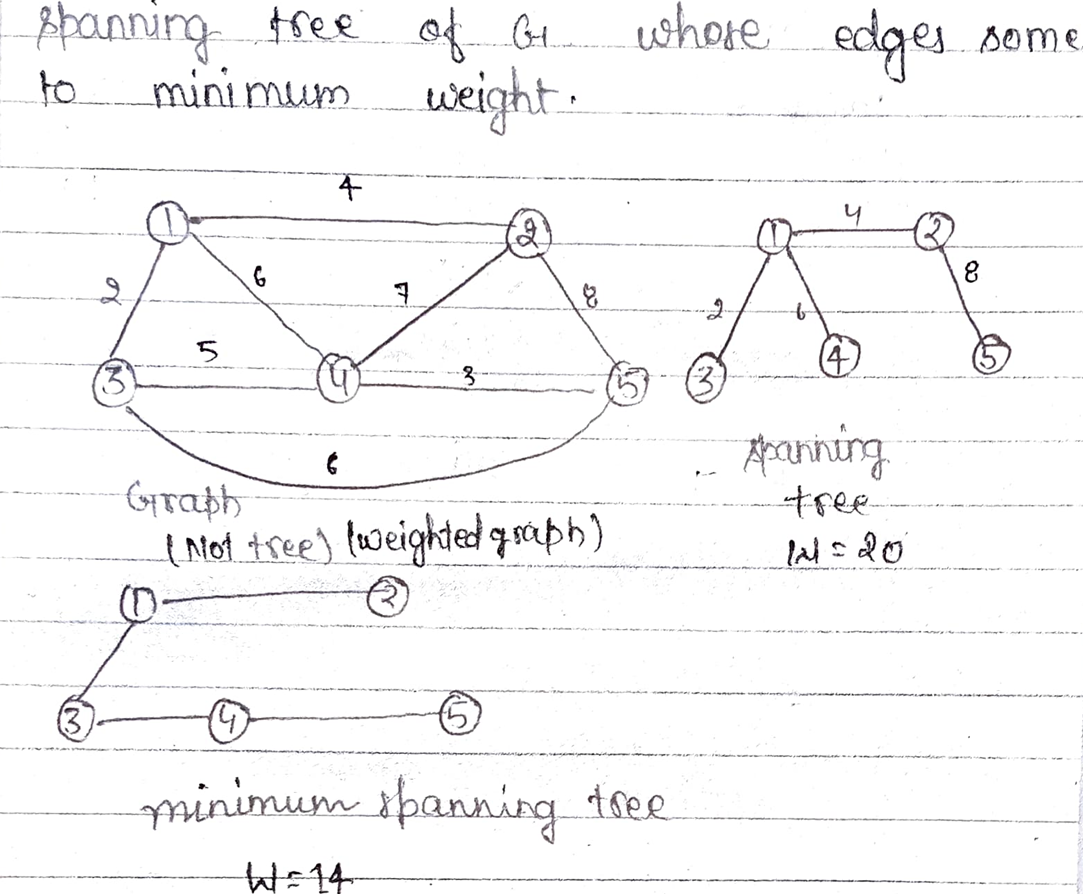 spanning tree of G whose edges some
to minimum weight.
4
1 2
2 6 7 8
5 3
3 4 5
6
Graph
(Not tree) (weighted graph)
4
1 2
2 6 8
3 4 5
spanning
tree
W = 20
1 2
3 4 5
minimum spanning tree
W = 14